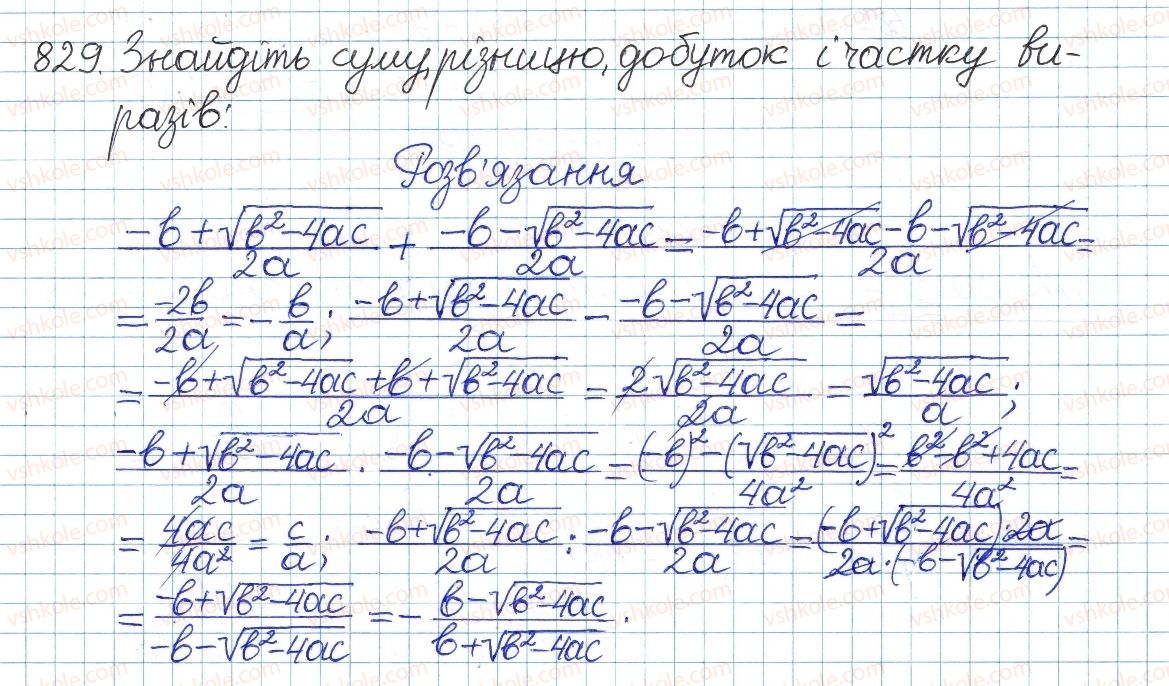 829. Знайдіть суму, різницю, добуток і частку ви-
разів:
Розв'язання
(-b+√(b²-4ac))/2a + (-b-√(b²-4ac))/2a = (-b+√(b²-4ac)-b-√(b²-4ac))/2a =
= -2b/2a = -b/a; (-b+√(b²-4ac))/2a - (-b-√(b²-4ac))/2a =
= (-b+√(b²-4ac)+b+√(b²-4ac))/2a = 2√(b²-4ac)/2a = √(b²-4ac)/a;
(-b+√(b²-4ac))/2a · (-b-√(b²-4ac))/2a = ((-b)²-(√(b²-4ac))²)/4a² = (b²-b²+4ac)/4a² =
= 4ac/4a² = c/a; (-b+√(b²-4ac))/2a : (-b-√(b²-4ac))/2a = ((-b+√(b²-4ac))·2a)/(2a·(-b-√(b²-4ac))) =
= (-b+√(b²-4ac))/(-b-√(b²-4ac)) = -(b-√(b²-4ac))/(b+√(b²-4ac)).
vshkole.com